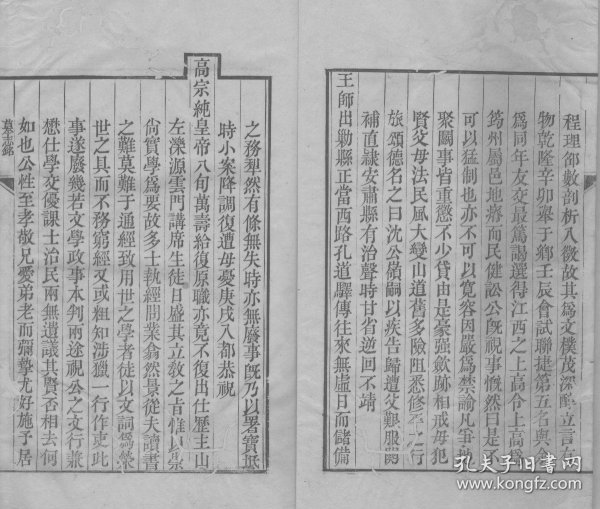 程理郤數剖析入微故其為文樸茂深醇立言有
物乾隆辛卯舉于鄉壬辰會試聯捷第五名與余
為同年友交最篤謁選得江西之上高令上高為
筠州屬邑地瘠而民健訟公旣視事慨然曰是不
可以猛制也亦不可以寬容因嚴為禁諭凡爭
聚鬬事皆重懲不少貸由是豪强斂跡相戒毋犯
賢父母法民風大變山道舊多險阻悉修
行
旅頌德名之曰沈公嶺嗣以疾告歸遭父艱服闋
補直隸安肅縣有治聲時甘省逆回不靖
王師出勦縣正當西路孔道驛傳往來無虛日而儲備
之務犁然有條無失時亦無廢事旣乃以署寶坻
時小案降調復遭毋憂庚戌入都恭祝
高宗純皇帝八旬萬壽給復原職亦竟不復出仕歷主山
左灤源雲門講席生徒日盛其立敎之旨惟以
尙實學為要故多士執經問業翕然景從夫讀書
之難莫難于通經致用世之學者徒以文詞為榮
世之具而不務窮經又或粗知涉獵一行作吏此
事遂廢幾若文學政事本判兩途視公之文行兼
懋仕學交優課士治民兩無遺議其賢否相去何
如也公性至孝敬兄愛弟老而彌摯尤好施予居
墓志銘
孔夫子旧书网
www.kongfz.com